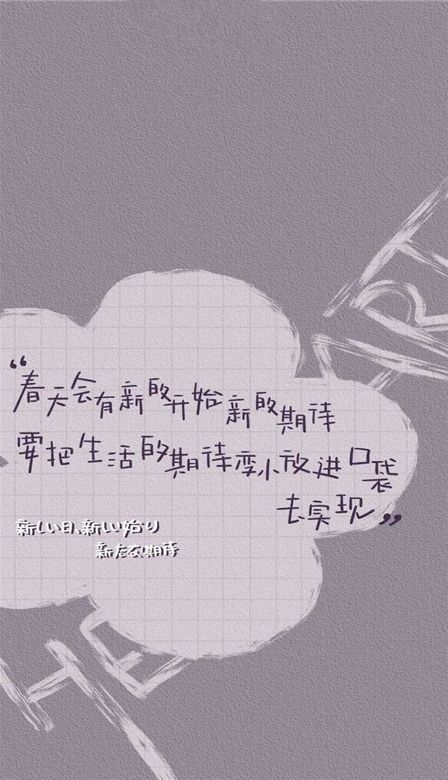 “春天会有新的开始 新的期待
要把生活的期待变小放进口袋
去实现”
新しい日、新しい始り
新たな期待